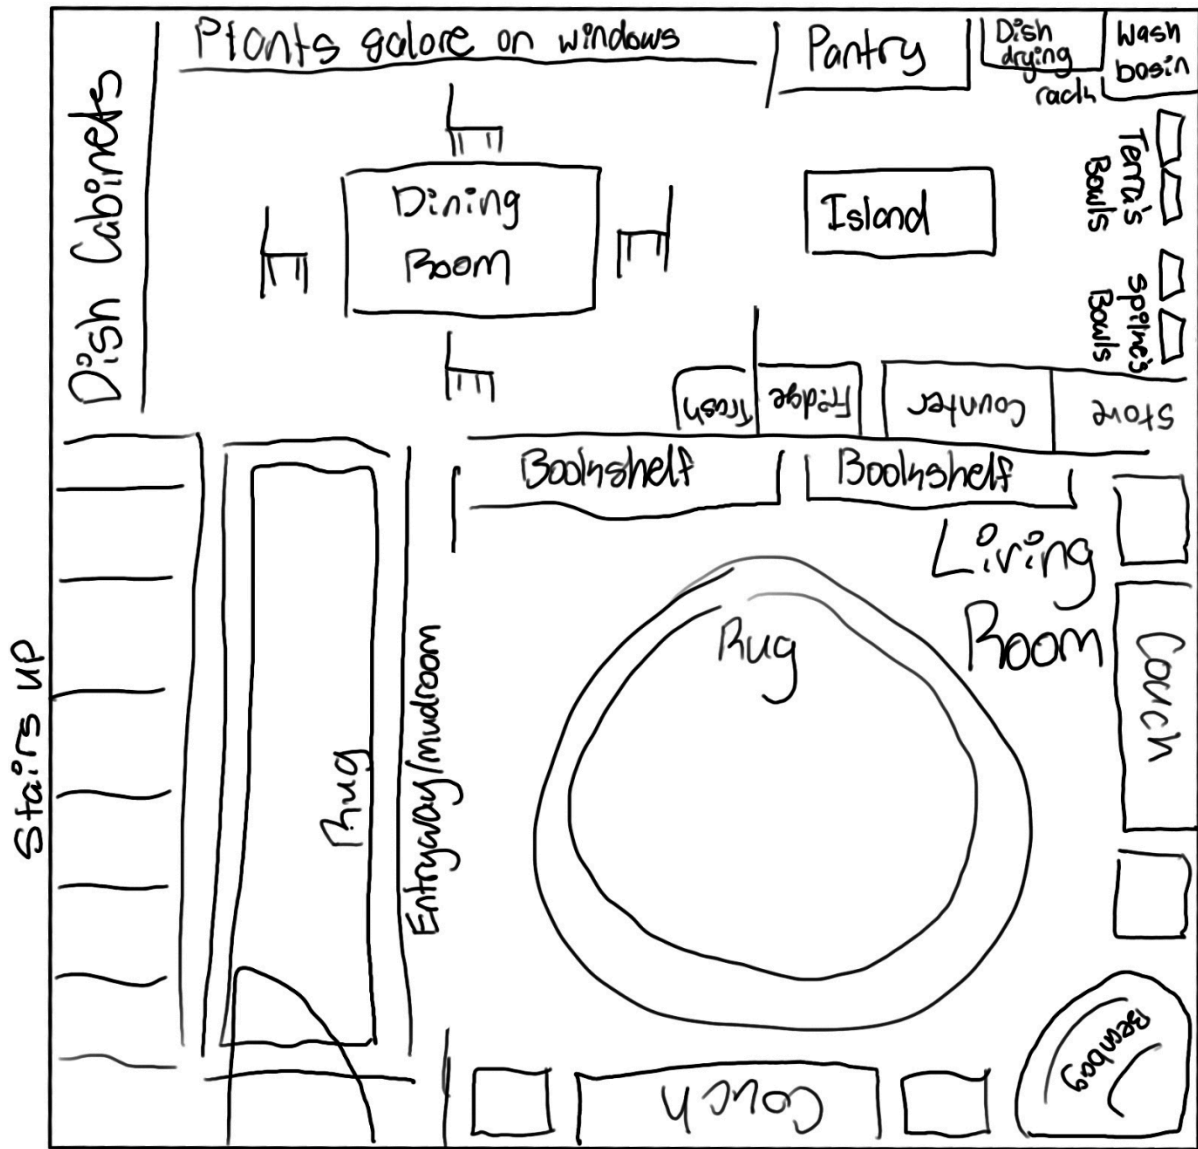 Plants galore on windows
Pantry
Dish
drying
rack
Wash
basin
Dish Cabinets
Dining
Room
Island
Terra's
Bowls
Spilne's
Bowls
Trash
Fridge
Counter
Stove
Bookshelf
Bookshelf
Living
Room
Rug
Couch
Stairs up
Rug
Entryway/mudroom
Beanbag
Couch